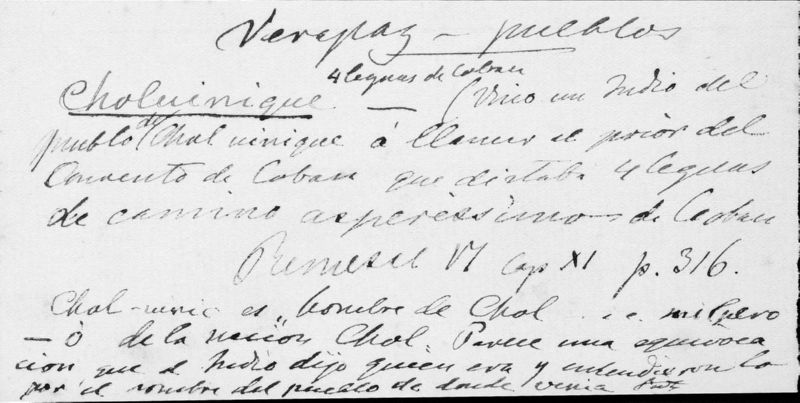 Verapaz - pueblos
4 leguas de Coban
Cholvinique — (Vino un Indio del
pueblo de Chol vinique á llamar el prior del
Convento de Coban que distaba 4 leguas
de camino asperissimo - de Coban
Remesal VI cap XI p. 316.
Chol-vinic es "hombre de Chol i.e. milpero
— ó de la nacion Chol. Parece una equivoca
cion que el Indio dijo quien era y entendieron lo
por el nombre del pueblo de donde venia